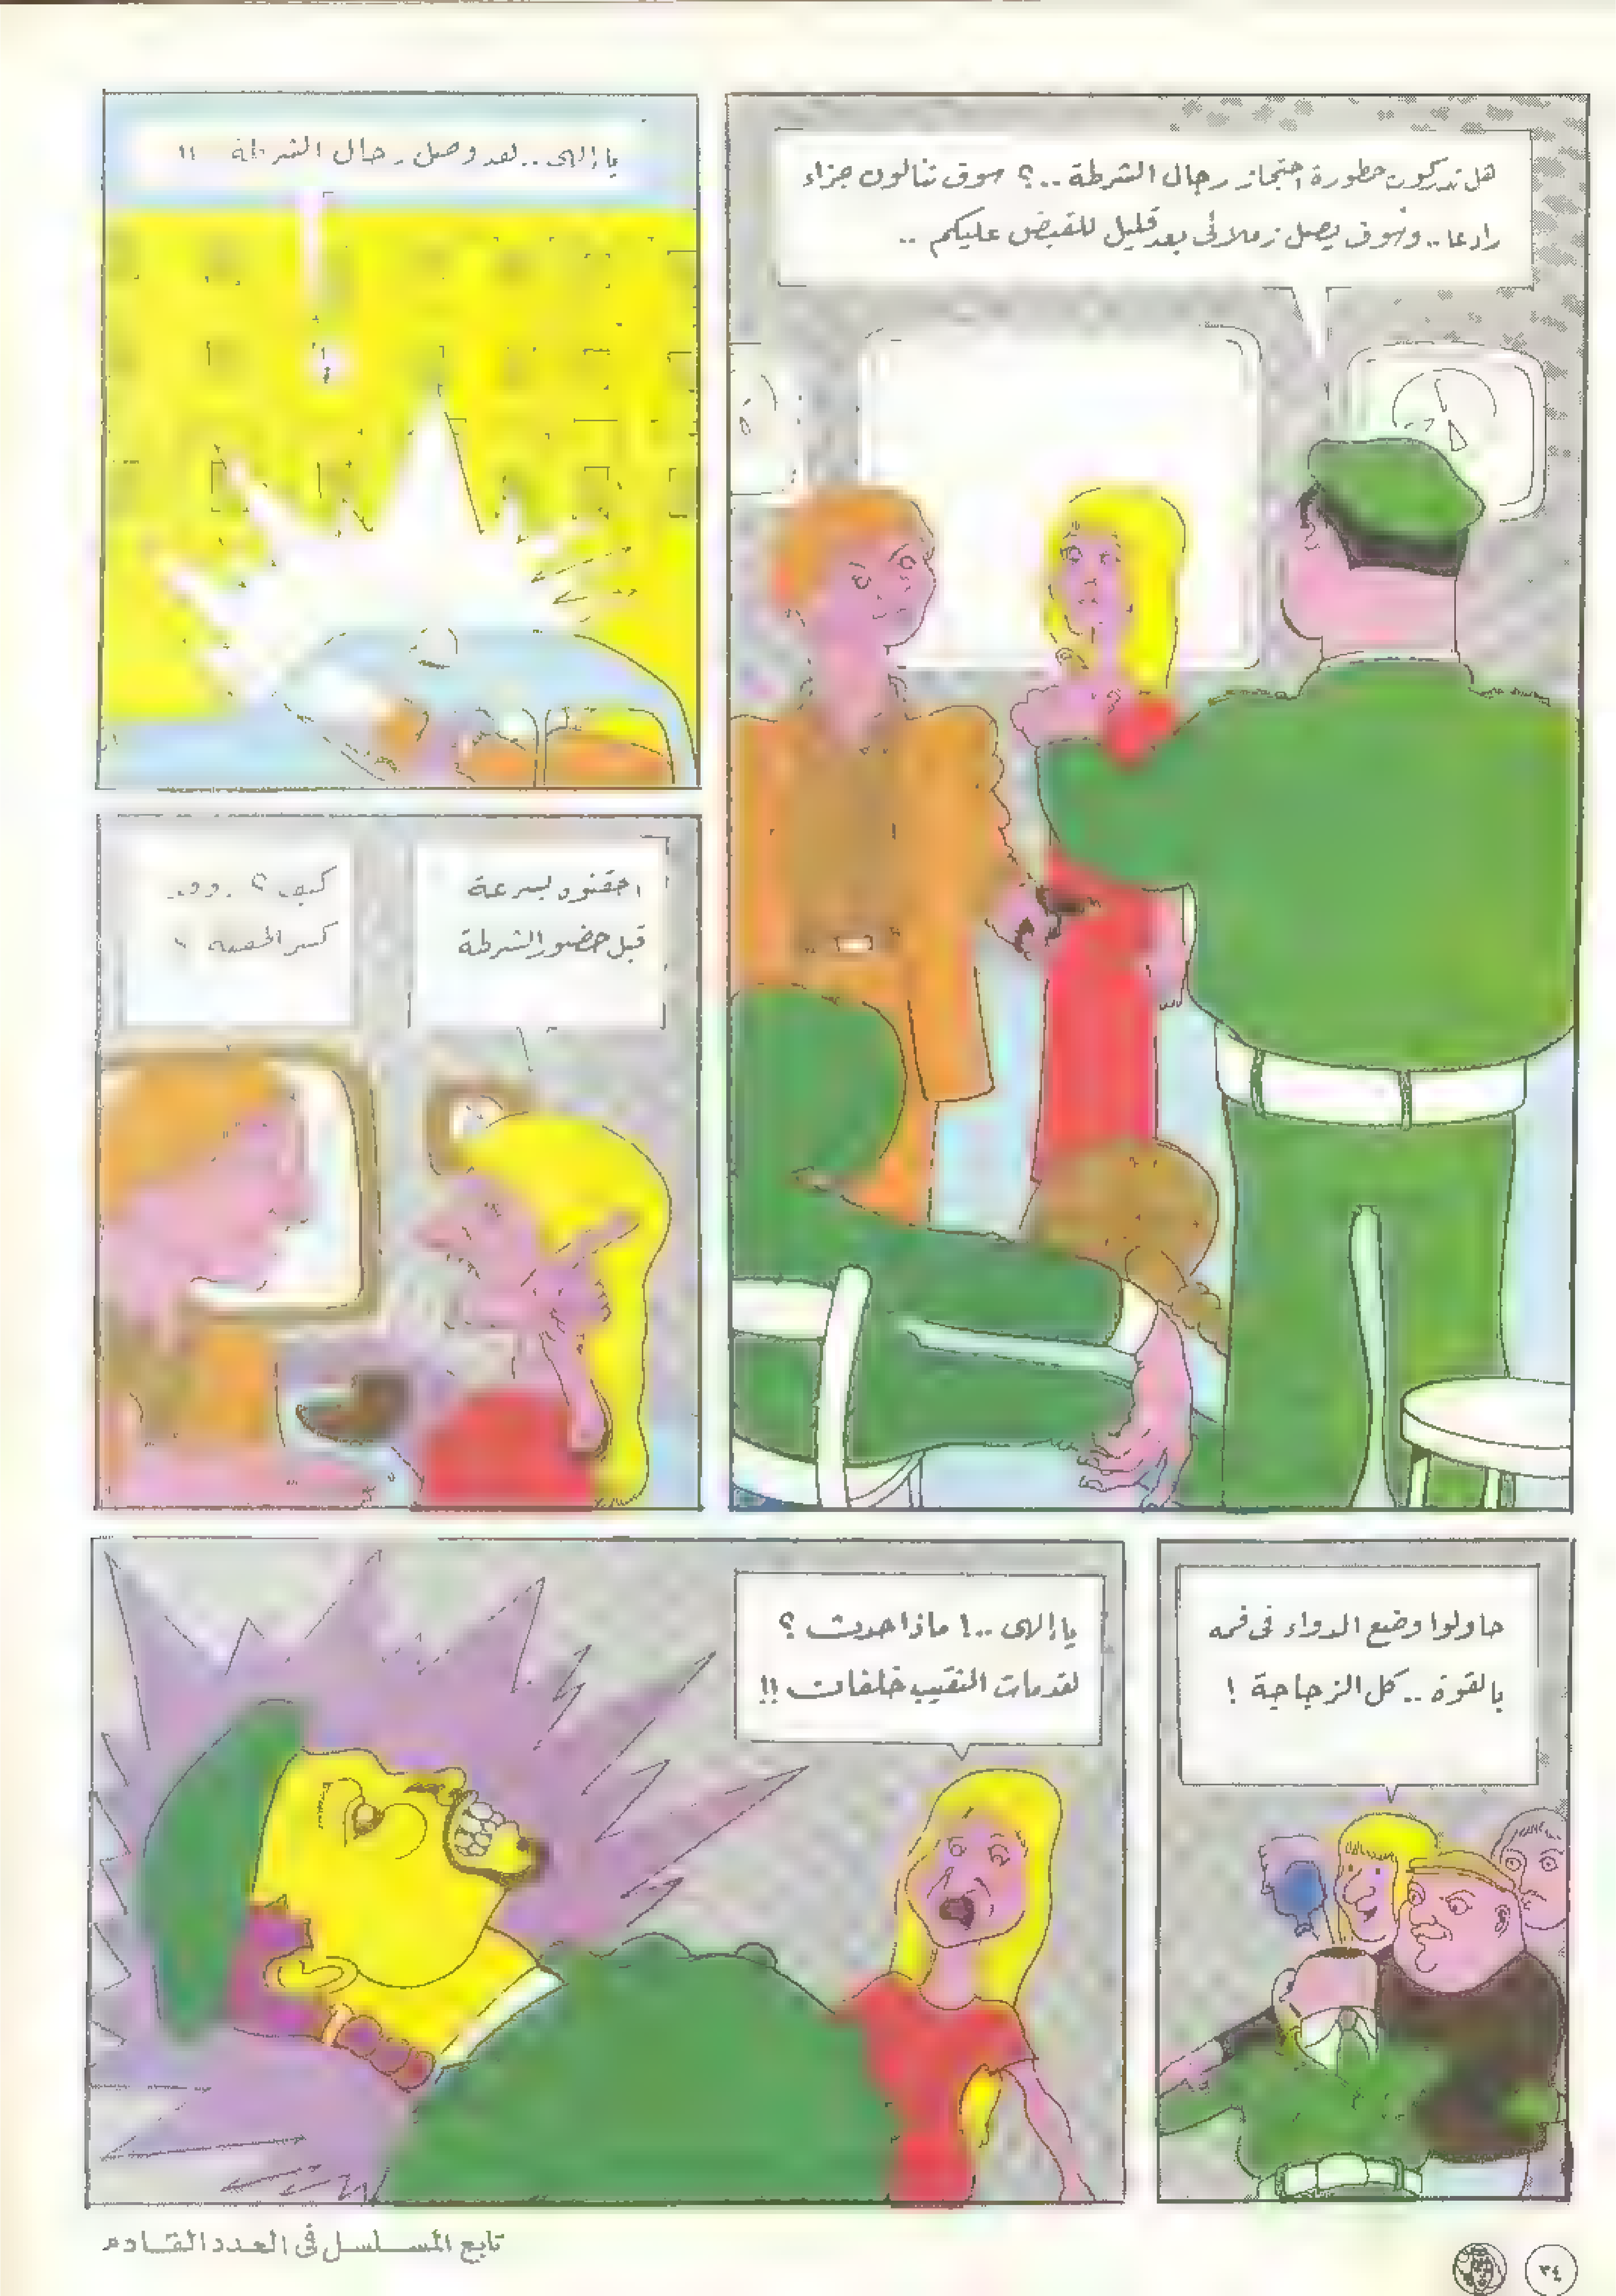 هل تدركون خطورة احتجاز رجال الشرطة ..؟ سوف تنالون جزاء
رادعا .. وسوف يصل زملائى بعد قليل للقبض عليكم ..
يا إلهى .. لقد وصل رجال الشرطة !!
احقنوه بسرعة
قبل حضور الشرطة
كيف ؟
كسر الحقنة
حاولوا وضع الدواء فى فمه
بالقوة .. كل الزجاجة !
يا إلهى ..! ماذا حدث ؟
لقد مات النقيب خلفان !!
تابع المسلسل فى العدد القادم
٣٤